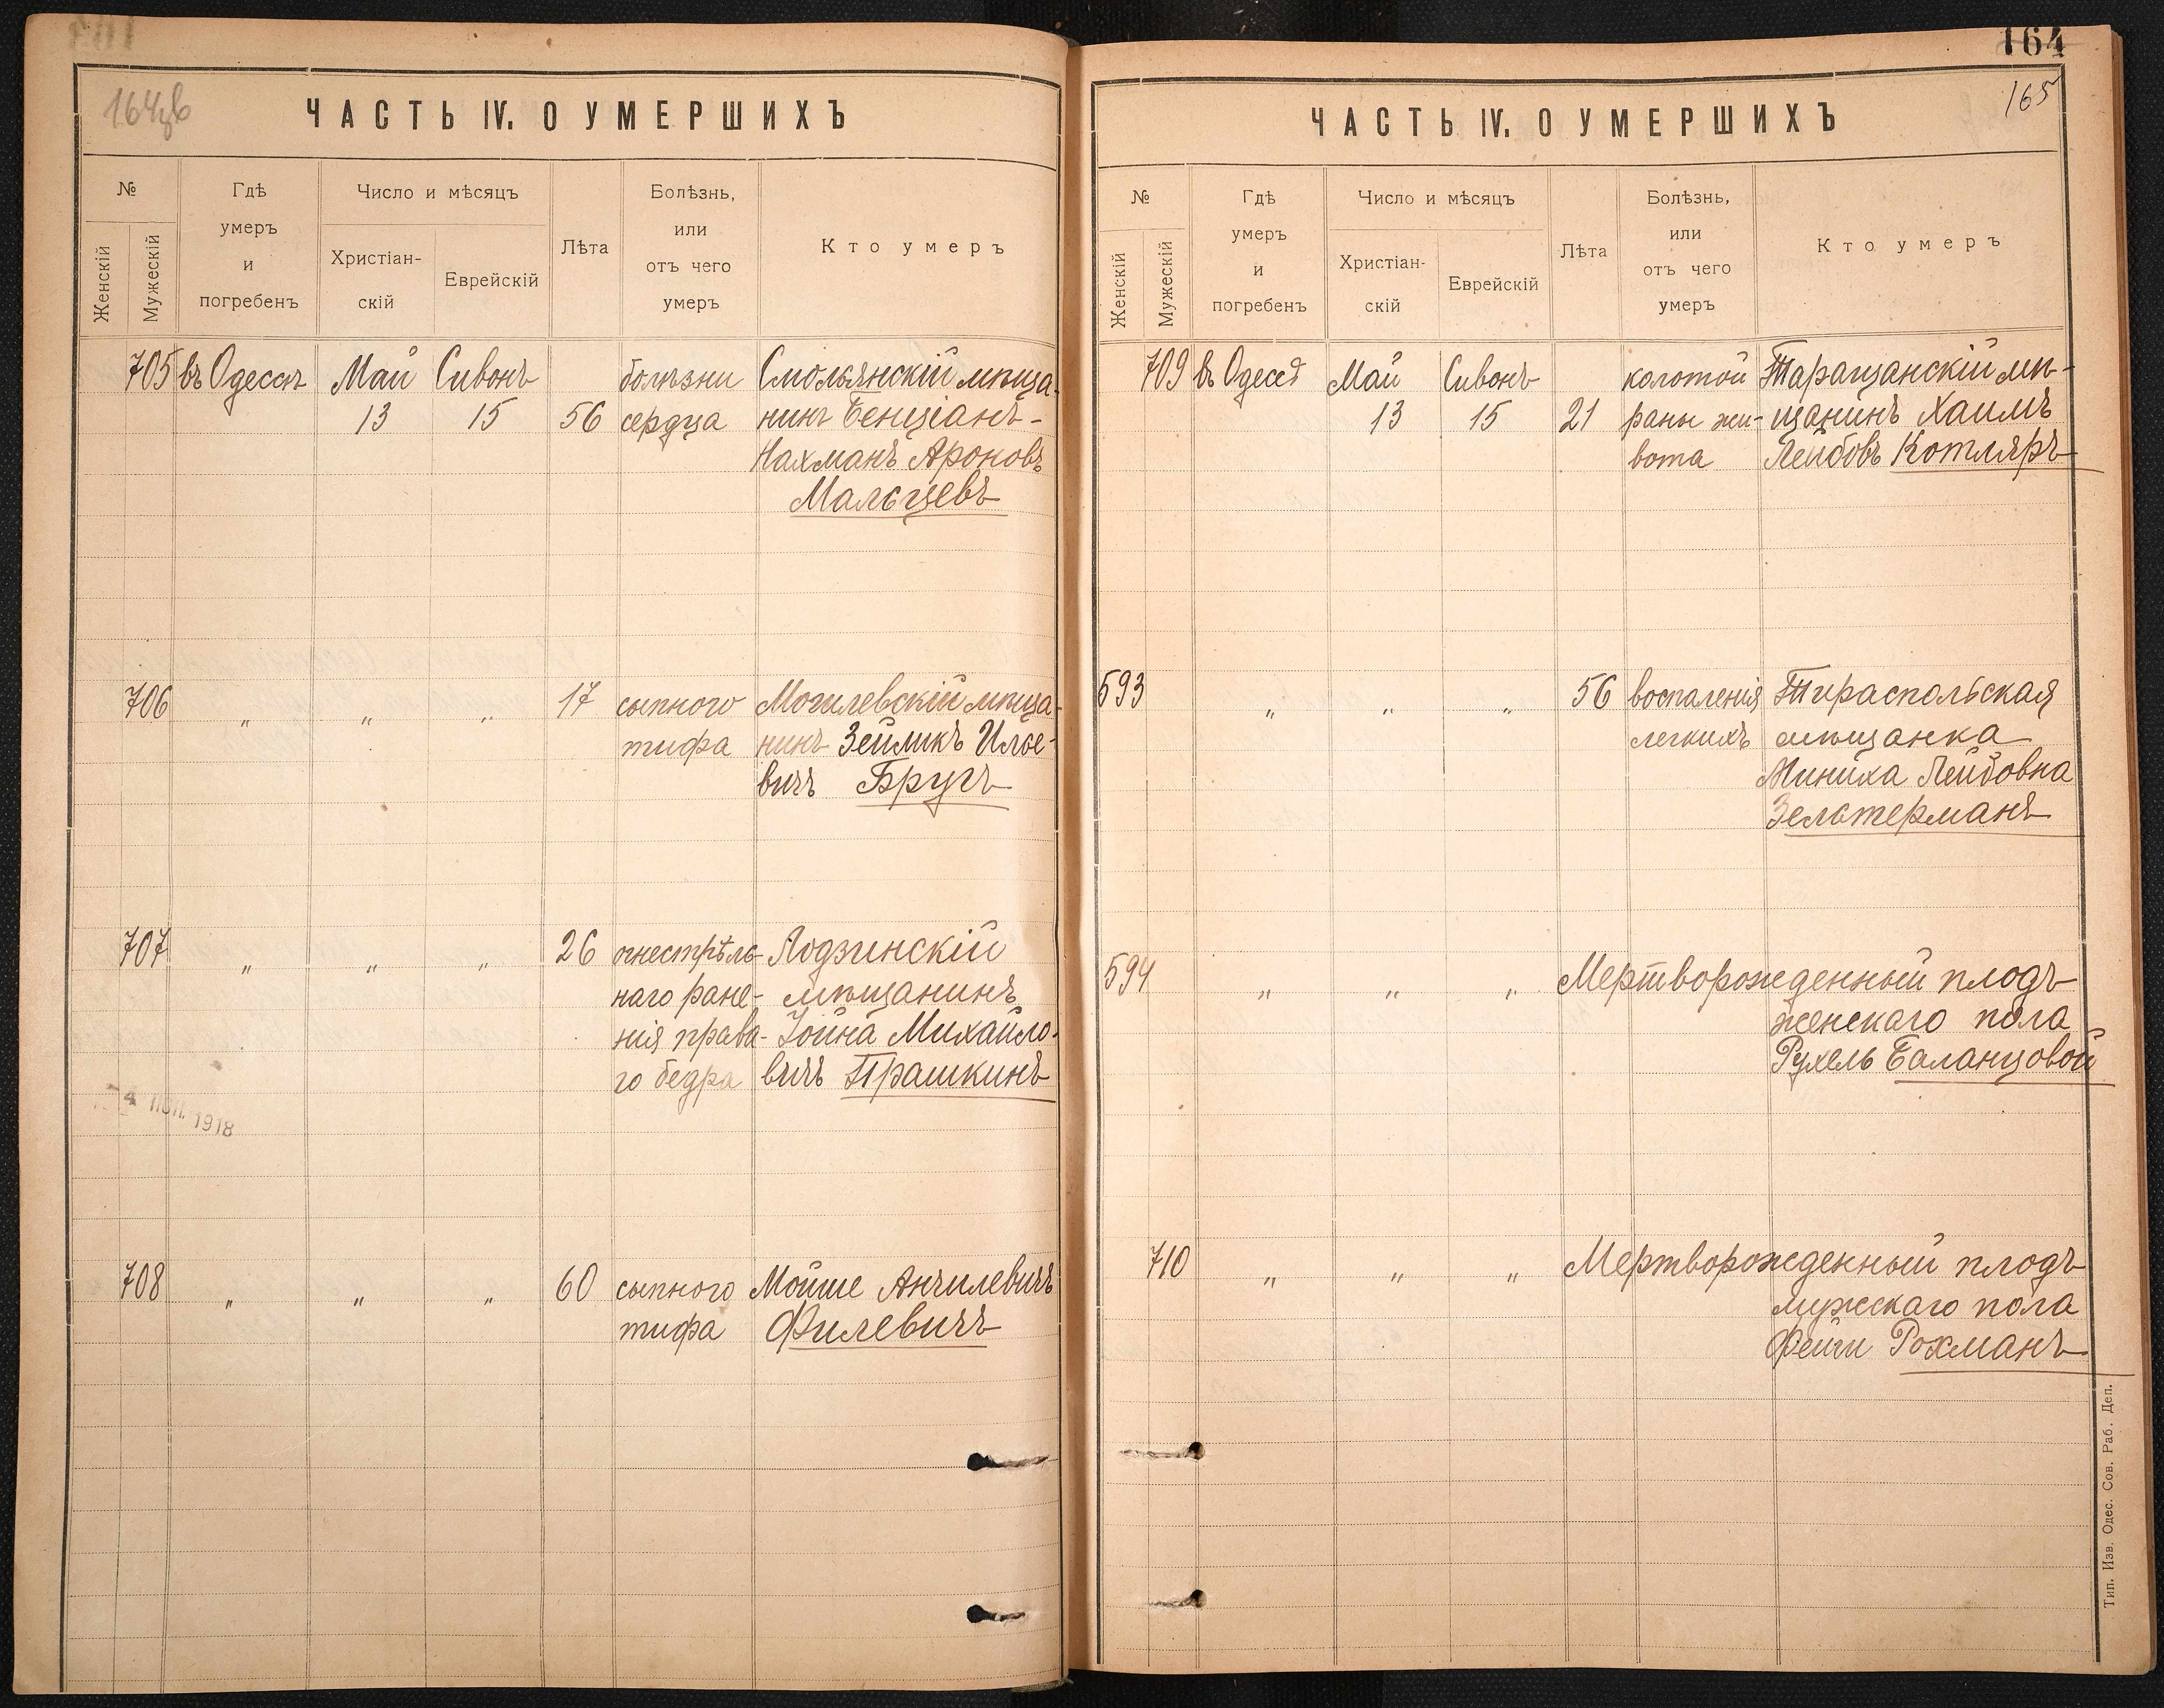 164
ЧАСТЬ IV. О УМЕРШИХЪ
№
Женскій
Мужескій
Гдѣ
умеръ
и
погребенъ
Число и мѣсяцъ
Христіан-
скій
Еврейскій
Лѣта
Болѣзнь,
или
отъ чего
умеръ
Кто умеръ
705 въ Одессѣ Май Сивонъ болѣзни Смольянскій мѣща-
13 15 56 сердца нинъ Бенціанъ-
Нахманъ Ароновъ
Мальцевъ
706 " " " 17 сыпного Могилевскій мѣща-
тифа нинъ Зейликъ Илье-
вичъ Бругъ
707 " " " 26 огнестрѣль- Лодзинскій
наго ране- мѣщанинъ
нія права- Іойна Михайло-
го бедра вичъ Прашкинъ
1918
708 " " " 60 сыпного Мойше Анчилевичъ
тифа Филевичъ
164
165
ЧАСТЬ IV. О УМЕРШИХЪ
№
Женскій
Мужескій
Гдѣ
умеръ
и
погребенъ
Число и мѣсяцъ
Христіан-
скій
Еврейскій
Лѣта
Болѣзнь,
или
отъ чего
умеръ
Кто умеръ
709 въ Одессѣ Май Сивонъ колотой Таращанскій мѣ-
13 15 21 раны жи- щанинъ Хаимъ
вота Лейбовъ Котляръ
593 " " " 56 воспаленія Тираспольская
легкихъ мѣщанка
Миниха Лейбовна
Зельтерманъ
594 " " " Мертворожденный плодъ
женскаго пола
Рухель Баланцовой
710 " " " Мертворожденный плодъ
мужскаго пола
Фейги Рохманъ
Тип. Изв. Одес. Сов. Раб. Деп.